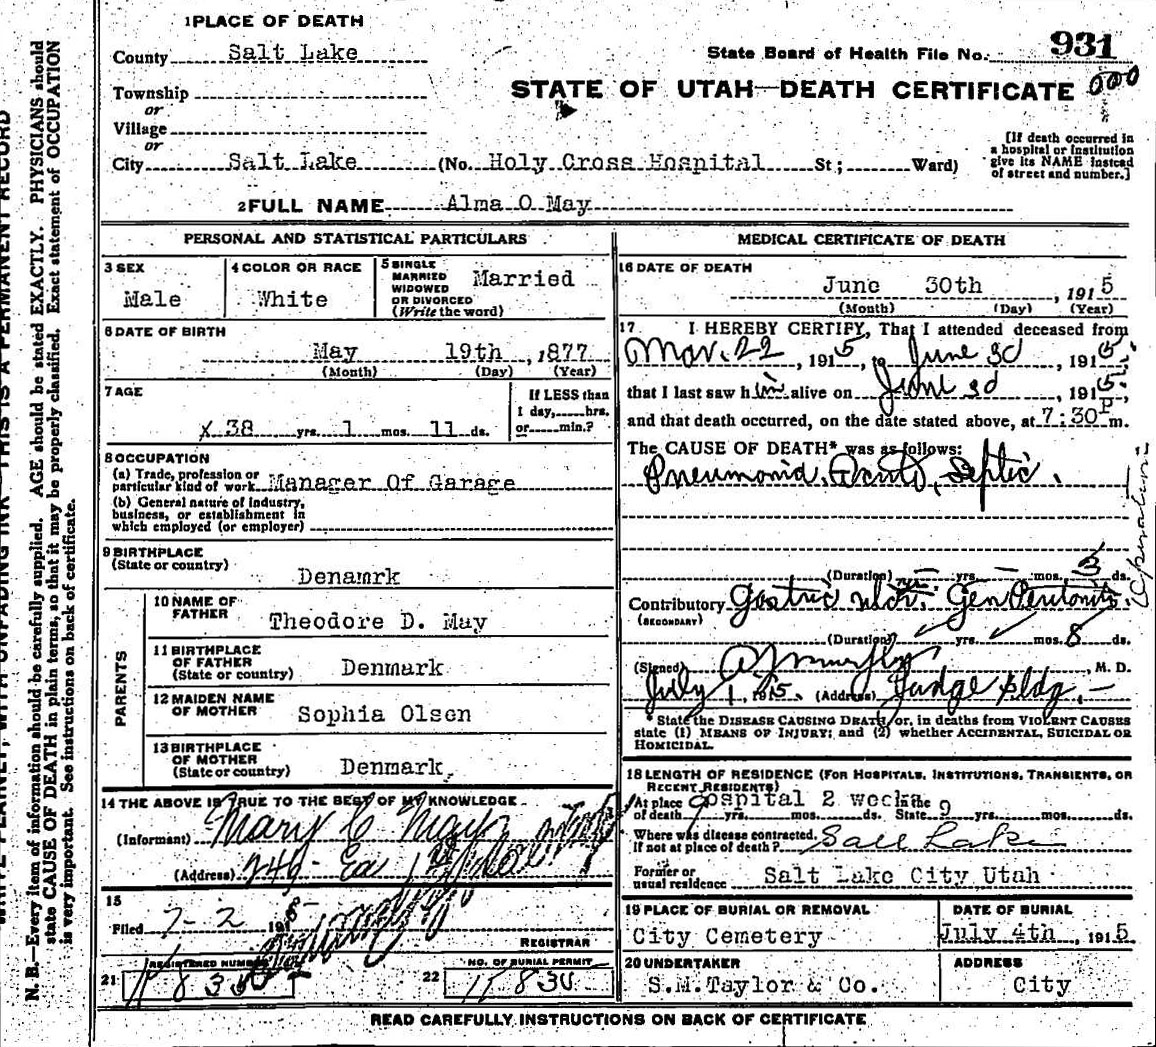 1 PLACE OF DEATH
County Salt Lake
State Board of Health File No. 931
Township
or
STATE OF UTAH—DEATH CERTIFICATE
Village
or
City Salt Lake (No. Holy Cross Hospital St; Ward)
[If death occurred in
a hospital or institution
give its NAME instead
of street and number.]
2 FULL NAME Alma O May
PERSONAL AND STATISTICAL PARTICULARS
3 SEX
Male
4 COLOR OR RACE
White
5 SINGLE
MARRIED
WIDOWED
OR DIVORCED
(Write the word)
Married
6 DATE OF BIRTH
May 19th, 1877
(Month) (Day) (Year)
7 AGE
X 38 yrs. 1 mos. 11 ds.
If LESS than
1 day, hrs.
or min.?
8 OCCUPATION
(a) Trade, profession or
particular kind of work Manager Of Garage
(b) General nature of industry,
business, or establishment in
which employed (or employer)
9 BIRTHPLACE
(State or country)
Denamrk
PARENTS
10 NAME OF
FATHER
Theodore D. May
11 BIRTHPLACE
OF FATHER
(State or country)
Denmark
12 MAIDEN NAME
OF MOTHER
Sophia Olsen
13 BIRTHPLACE
OF MOTHER
(State or country)
Denmark
14 THE ABOVE IS TRUE TO THE BEST OF MY KNOWLEDGE
(Informant) Mary C May
(Address) 249 Ea 1st
15
Filed 7-2 1915
REGISTRAR
REGISTERED NUMBER
21
NO. OF BURIAL PERMIT
22
MEDICAL CERTIFICATE OF DEATH
16 DATE OF DEATH
June 30th, 1915
(Month) (Day) (Year)
17. I HEREBY CERTIFY, That I attended deceased from
Mar. 22, 1915, to June 30, 1915,
that I last saw him alive on June 30, 1915,
and that death occurred, on the date stated above, at 7:30 P m.
The CAUSE OF DEATH* was as follows:
Pneumonia, Acute, Septic.
(Duration) yrs. mos. 3 ds.
Contributory Gastric Ulcer. Gen Peritonitis.
(SECONDARY)
Operation
(Duration) yrs. mos. 8 ds.
(Signed) M. D.
July 1, 1915. (Address) Judge Bldg.
*State the DISEASE CAUSING DEATH, or, in deaths from VIOLENT CAUSES
state (1) MEANS OF INJURY; and (2) whether ACCIDENTAL, SUICIDAL OR
HOMICIDAL.
18 LENGTH OF RESIDENCE (FOR HOSPITALS, INSTITUTIONS, TRANSIENTS, OR
RECENT RESIDENTS)
At place hospital 2 weeks In the 9
of death yrs. mos. ds. State yrs. mos. ds.
Where was disease contracted,
If not at place of death? Salt Lake
Former or
usual residence Salt Lake City Utah
19 PLACE OF BURIAL OR REMOVAL
City Cemetery
DATE OF BURIAL
July 4th, 1915
20 UNDERTAKER
S.M.Taylor & Co.
ADDRESS
City
READ CAREFULLY INSTRUCTIONS ON BACK OF CERTIFICATE
N. B.—Every item of information should be carefully supplied. AGE should be stated EXACTLY. PHYSICIANS should
state CAUSE OF DEATH in plain terms, so that it may be properly classified. Exact statement of OCCUPATION
is very important. See instructions on back of certificate.
WRITE PLAINLY, WITH UNFADING INK—THIS IS A PERMANENT RECORD